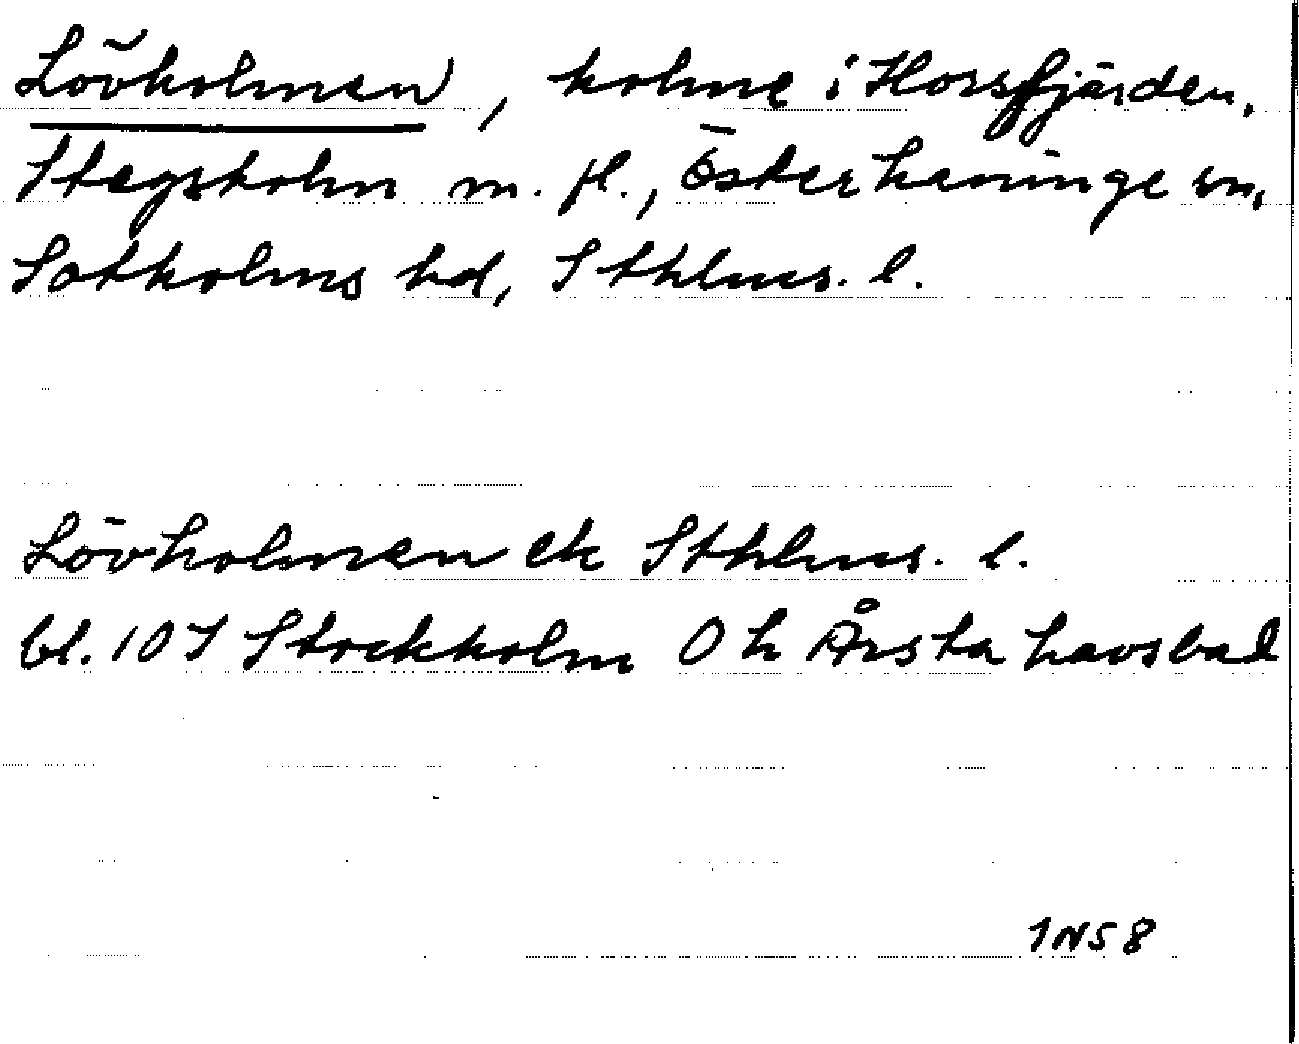 Lövholmen, holme i Horsfjärden,
Stegsholm m. fl., Österhaninge sn,
Sotholms hd, Sthlms. l.
Lövholmen ek Sthlms. l.
bl. 10 I Stockholm 0 h Årsta havsbad
1N58